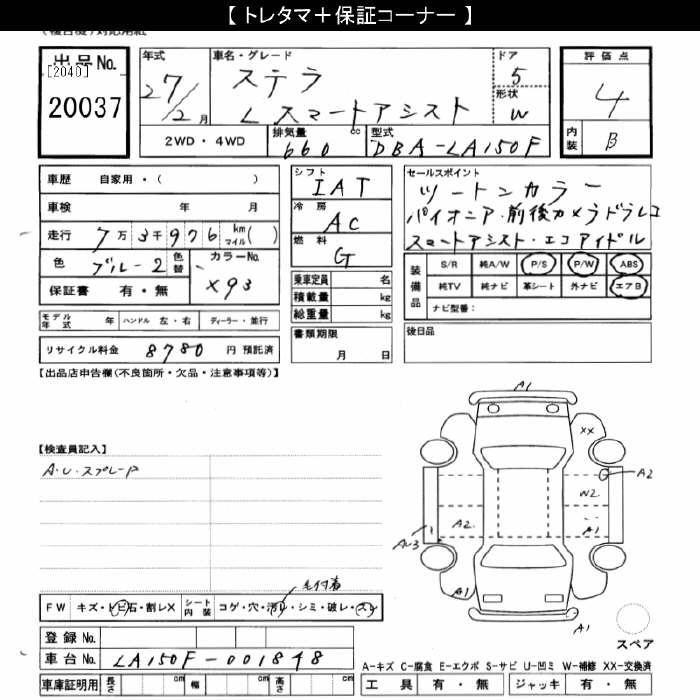 【 トレタマ＋保証コーナー 】
出品No.
[2040]
20037
年式
27/2月
車名・グレード
ステラ
L スマートアシスト
ドア
5
形状
W
評価点
4
内装
B
2WD・4WD
排気量 660 cc
型式 DBA-LA150F
車歴 自家用・( )
車検 年 月
走行 7万3千976 km マイル( )
色 ブルー2 色替
カラーNo. X93
保証書 有・無
シフト IAT
冷房 AC
燃料 G
乗車定員 名
積載量 kg
総重量 kg
セールスポイント
ツートンカラー
パイオニア・前後カメラドラレコ
スマートアシスト・エコアイドル
装備品
S/R 純A/W P/S P/W ABS
純TV 純ナビ 革シート 外ナビ エアB
ナビ型壱:
モデル年式 年 ハンドル 左・右 ディーラー・並行
書類期限 月 日
後日品
リサイクル料金 8780 円 預託済
【出品店申告欄(不良箇所・欠品・注意事項等)】
【検査員記入】
A・U・スプレーP
A1
XX
A2
W2
A2
A1
AU3
A1
A1
スペア
毛付着
FW キズ・トビ石・割レX シート内装 コゲ・穴・汚レ・シミ・破レ・スレ
登録No.
車台No. LA150F-001848
車庫証明用 長さ cm 幅 cm 高さ cm
A-キズ C-腐食 E-エクボ S-サビ U-凹ミ W-補修 XX-交換済
工具 有・無 ジャッキ 有・無